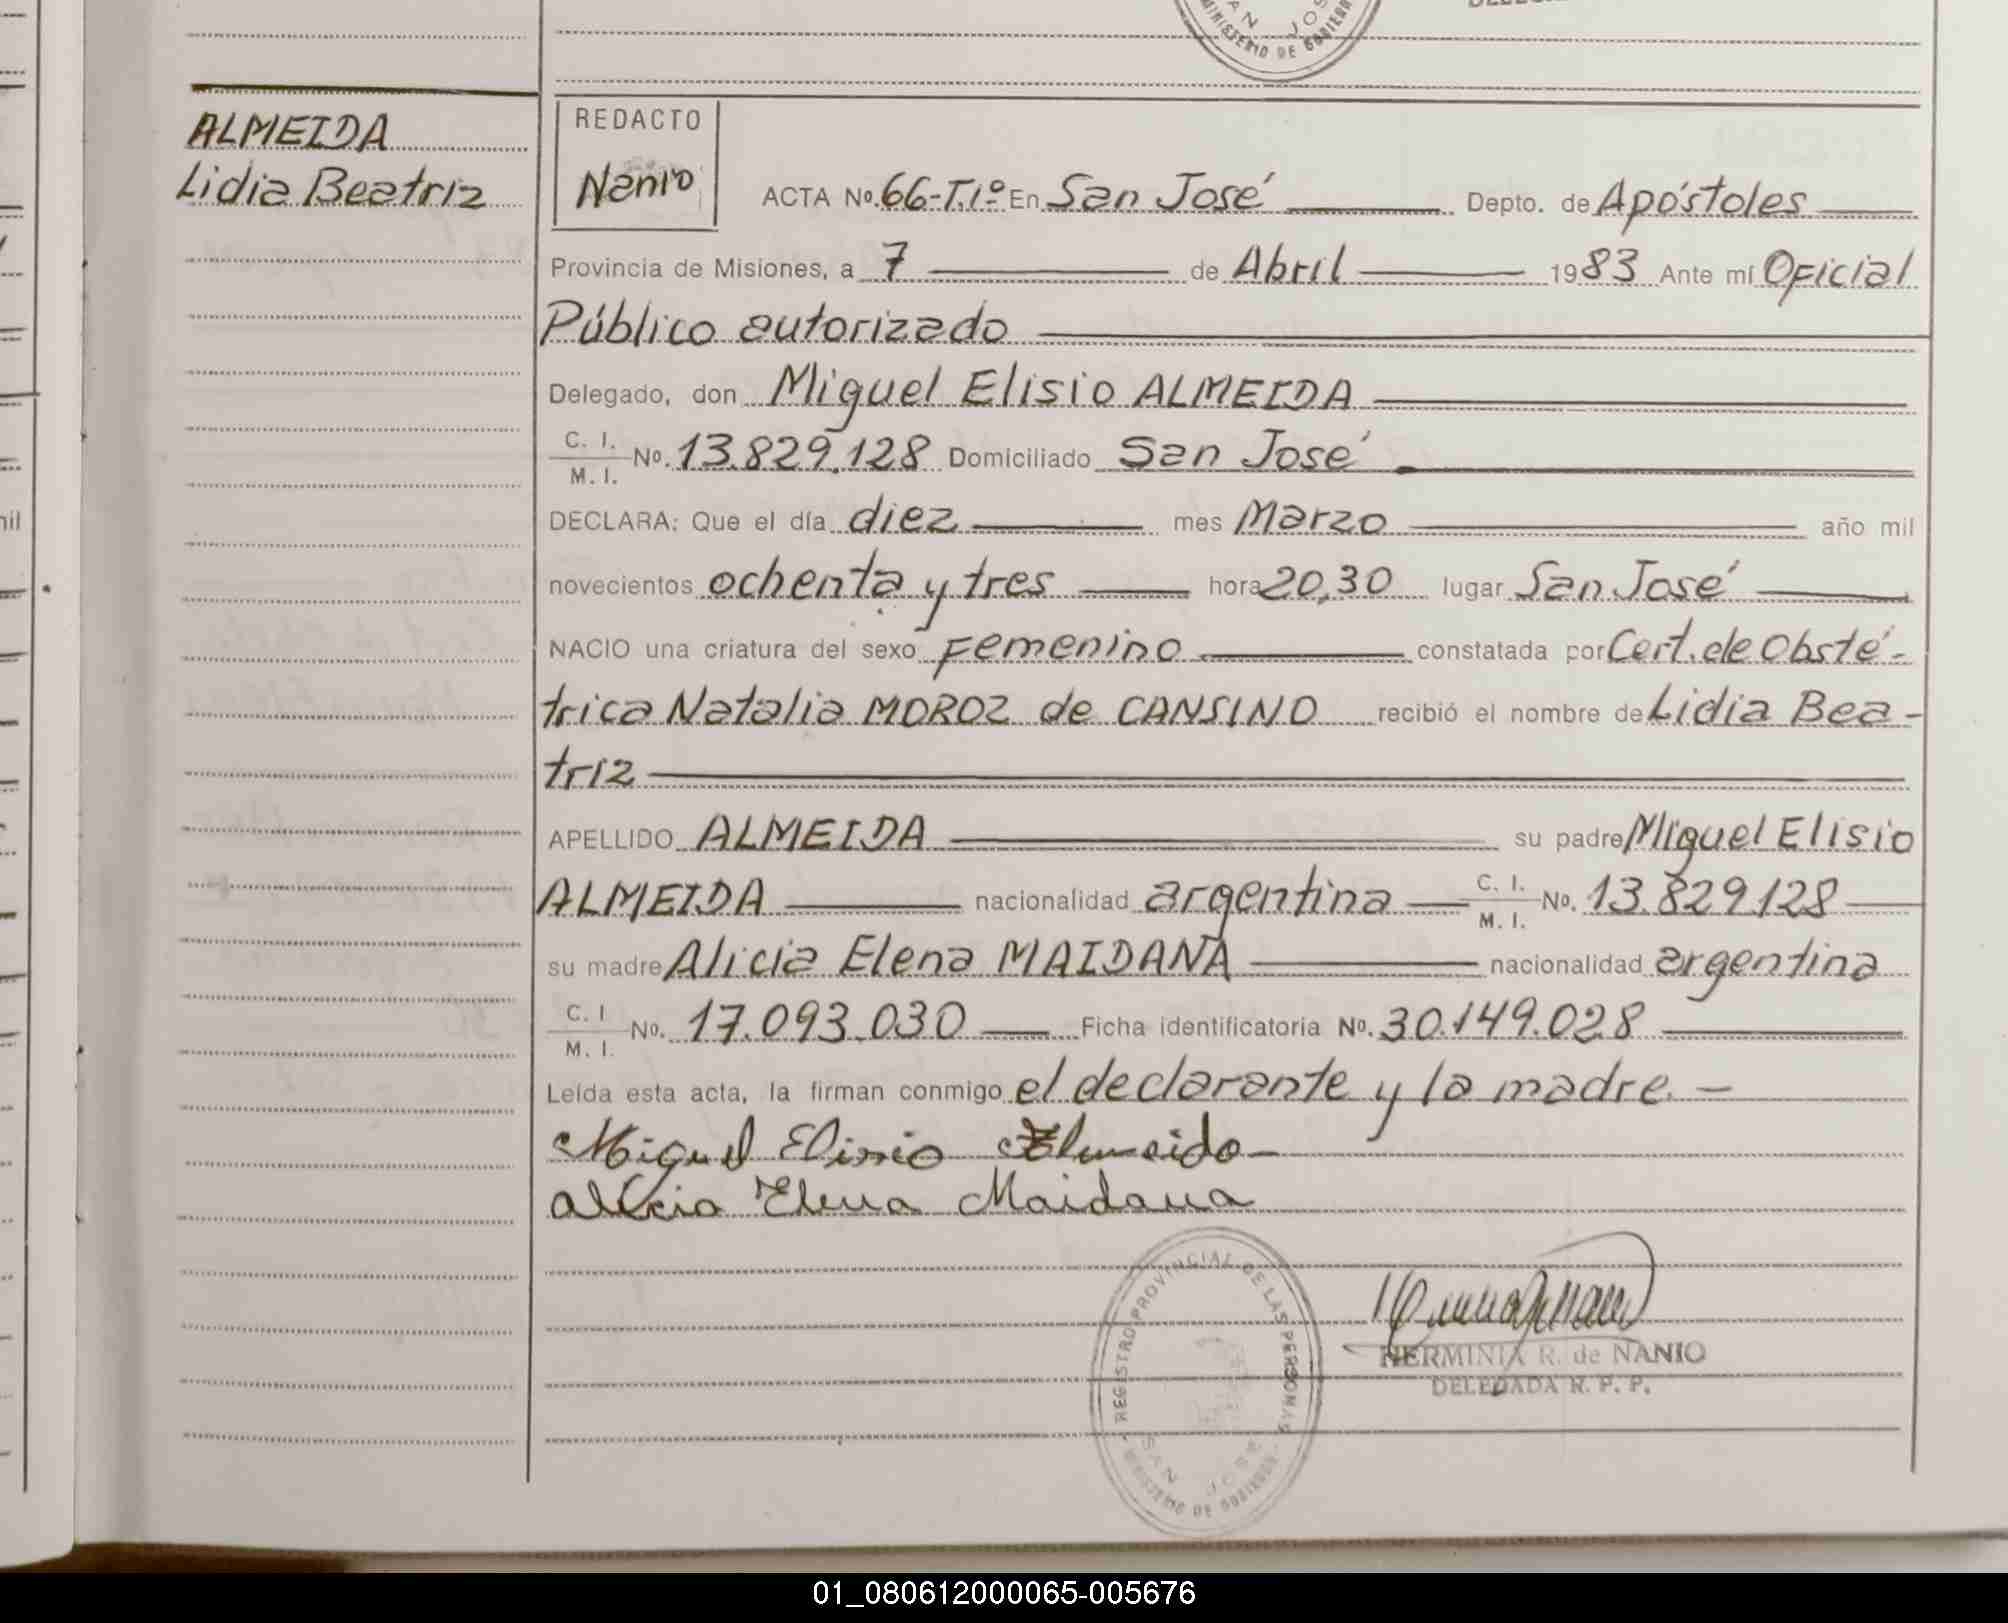 MINISTERIO DE GOBIERNO
SAN JOSE
ALMEIDA
Lidia Beatriz
REDACTO
Nanio
ACTA No. 66-T.1º En San José Depto. de Apóstoles
Provincia de Misiones, a 7 de Abril 1983 Ante mí Oficial
Público autorizado
Delegado, don Miguel Elisio ALMEIDA
C. I.
M. I. No. 13.829.128 Domiciliado San José
DECLARA: Que el día diez mes Marzo año mil
novecientos ochenta y tres hora 20,30 lugar San José
NACIO una criatura del sexo Femenino constatada por Cert. de Obsté-
trica Natalia MOROZ de CANSINO recibió el nombre de Lidia Bea-
triz
APELLIDO ALMEIDA su padre Miguel Elisio
ALMEIDA nacionalidad argentina C. I. M. I. No. 13.829.128
su madre Alicia Elena MAIDANA nacionalidad argentina
C. I
M. I. No. 17.093.030 Ficha identificatoria No. 30.149.028
Leída esta acta, la firman conmigo el declarante y la madre. -
Miguel Elisio Almeida
Alicia Elena Maidana
REGISTRO PROVINCIAL DE LAS PERSONAS
SAN JOSE
MINISTERIO DE GOBIERNO
HERMINIA R. de NANIO
DELEGADA R. P. P.
01_080612000065-005676